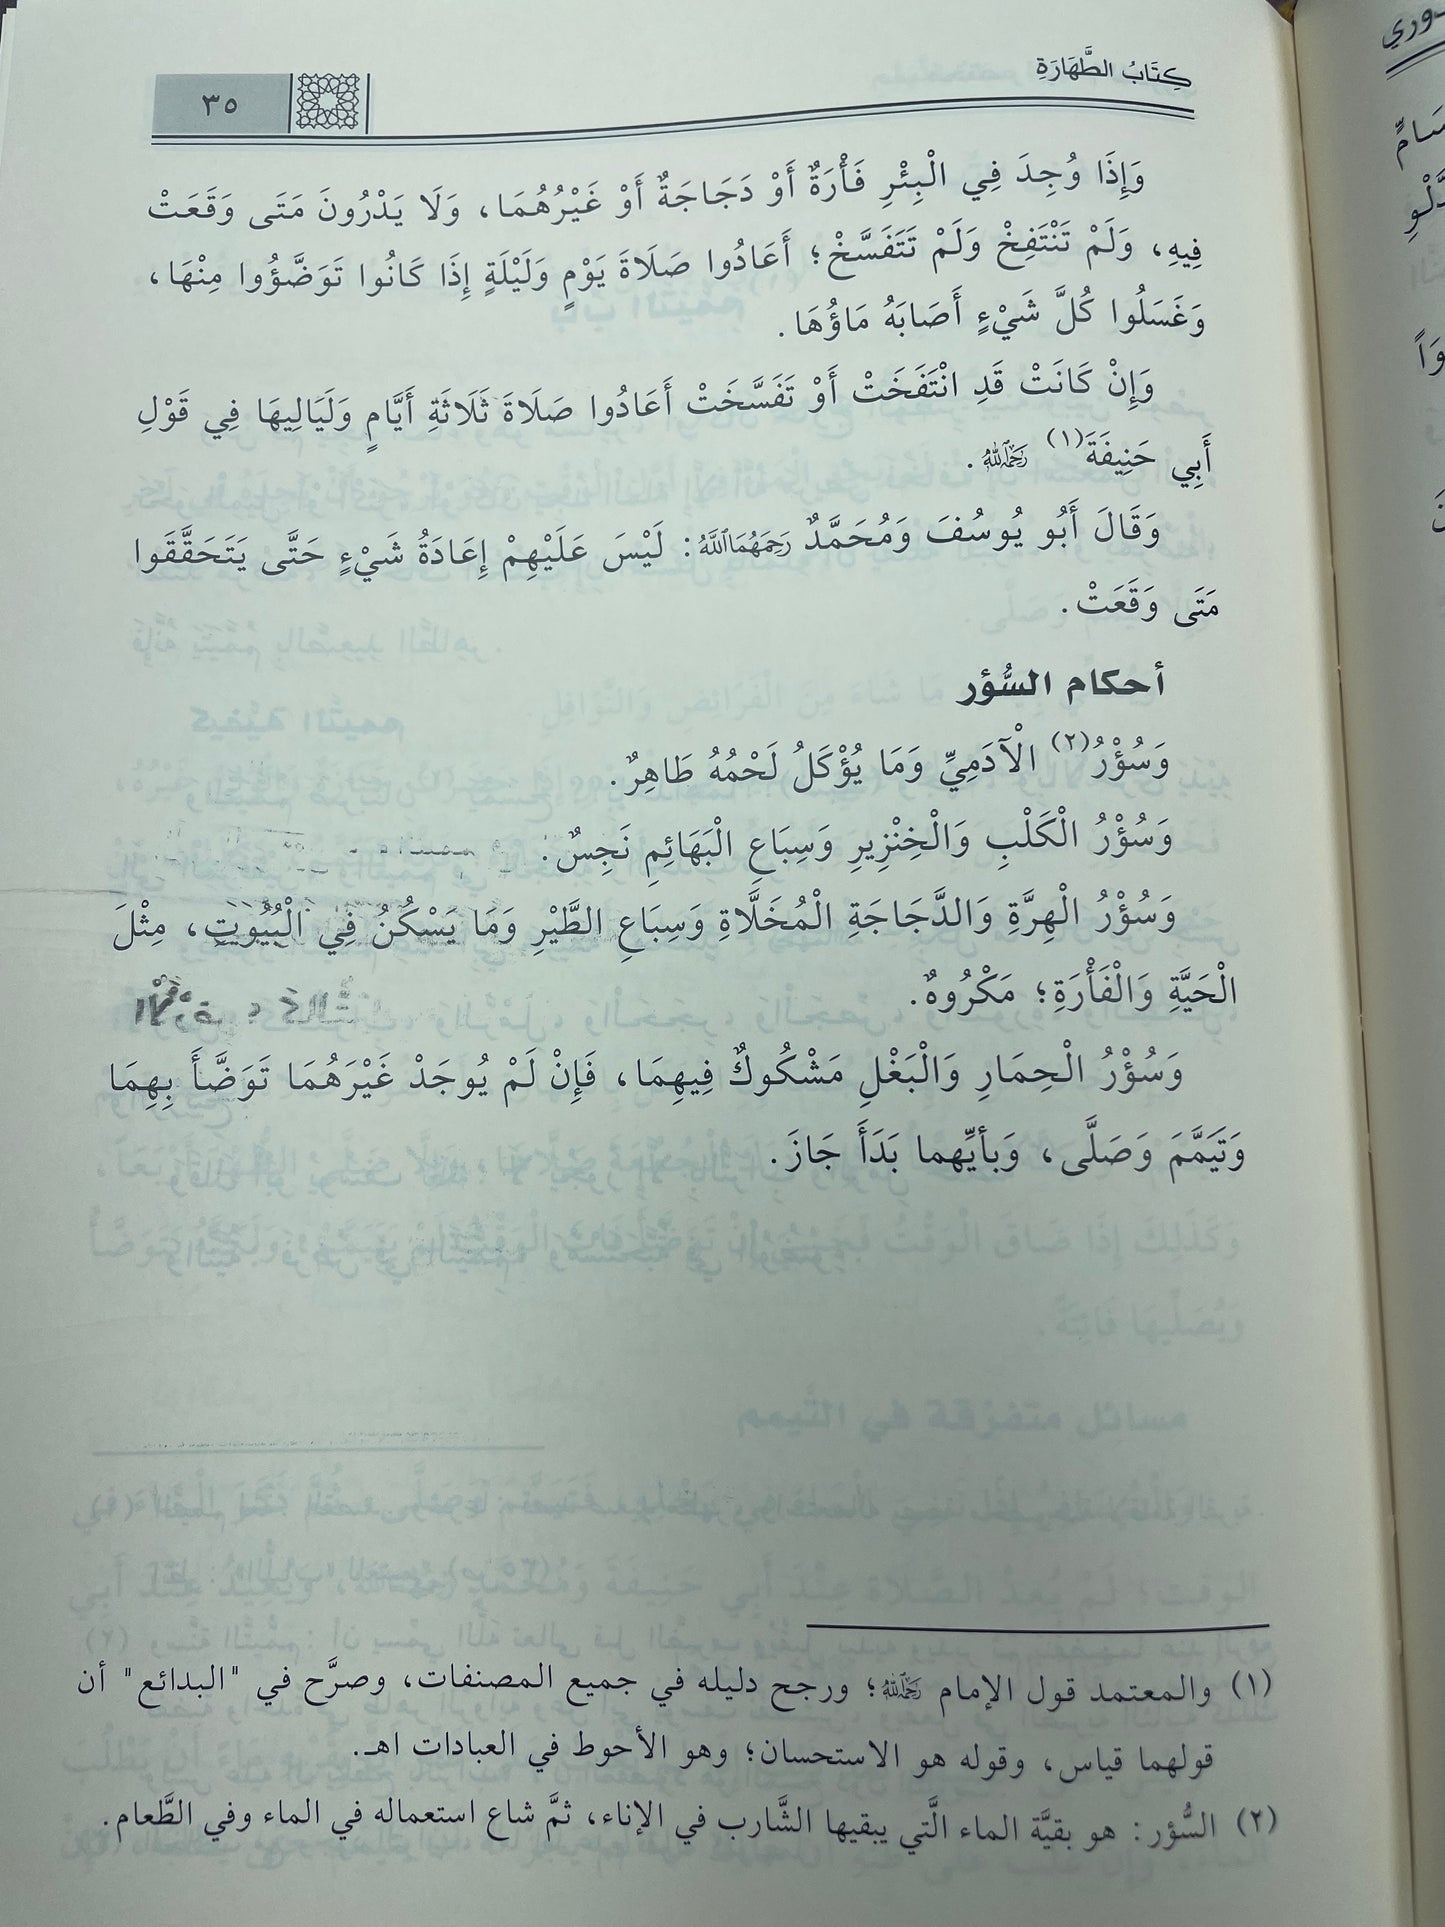 كِتَابُ الطَّهَارَةِ
٣٥
وَإِذَا وُجِدَ فِي الْبِئْرِ فَأْرَةٌ أَوْ دَجَاجَةٌ أَوْ غَيْرُهُمَا، وَلَا يَدْرُونَ مَتَى وَقَعَتْ
فِيهِ، وَلَمْ تَنْتَفِخْ وَلَمْ تَتَفَسَّخْ؛ أَعَادُوا صَلَاةَ يَوْمٍ وَلَيْلَةٍ إِذَا كَانُوا تَوَضَّؤُوا مِنْهَا،
وَغَسَلُوا كُلَّ شَيْءٍ أَصَابَهُ مَاؤُهَا.
وَإِنْ كَانَتْ قَدِ انْتَفَخَتْ أَوْ تَفَسَّخَتْ أَعَادُوا صَلَاةَ ثَلَاثَةِ أَيَّامٍ وَلَيَالِيهَا فِي قَوْلِ
أَبِي حَنِيفَةَ(١) رَحِمَهُ اللَّهُ.
وَقَالَ أَبُو يُوسُفَ وَمُحَمَّدٌ رَحِمَهُمَا اللَّهُ: لَيْسَ عَلَيْهِمْ إِعَادَةُ شَيْءٍ حَتَّى يَتَحَقَّقُوا
مَتَى وَقَعَتْ.
أحكام السُّؤر
وَسُؤْرُ(٢) الْآدَمِيِّ وَمَا يُؤْكَلُ لَحْمُهُ طَاهِرٌ.
وَسُؤْرُ الْكَلْبِ وَالْخِنْزِيرِ وَسِبَاعِ الْبَهَائِمِ نَجِسٌ.
وَسُؤْرُ الْهِرَّةِ وَالدَّجَاجَةِ الْمُخَلَّاةِ وَسِبَاعِ الطَّيْرِ وَمَا يَسْكُنُ فِي الْبُيُوتِ، مِثْلَ
الْحَيَّةِ وَالْفَأْرَةِ؛ مَكْرُوهٌ.
وَسُؤْرُ الْحِمَارِ وَالْبَغْلِ مَشْكُوكٌ فِيهِمَا، فَإِنْ لَمْ يُوجَدْ غَيْرَهُمَا تَوَضَّأَ بِهِمَا
وَتَيَمَّمَ وَصَلَّى، وَبأيِّهما بَدَأَ جَازَ.
(١) والمعتمد قول الإمام رَحِمَهُ اللَّهُ؛ ورجح دليله في جميع المصنفات، وصرَّح في "البدائع" أن
قولهما قياس، وقوله هو الاستحسان؛ وهو الأحوط في العبادات اهـ.
(٢) السُّؤر: هو بقيَّة الماء الَّتي يبقيها الشَّارب في الإناء، ثمَّ شاع استعماله في الماء وفي الطَّعام.